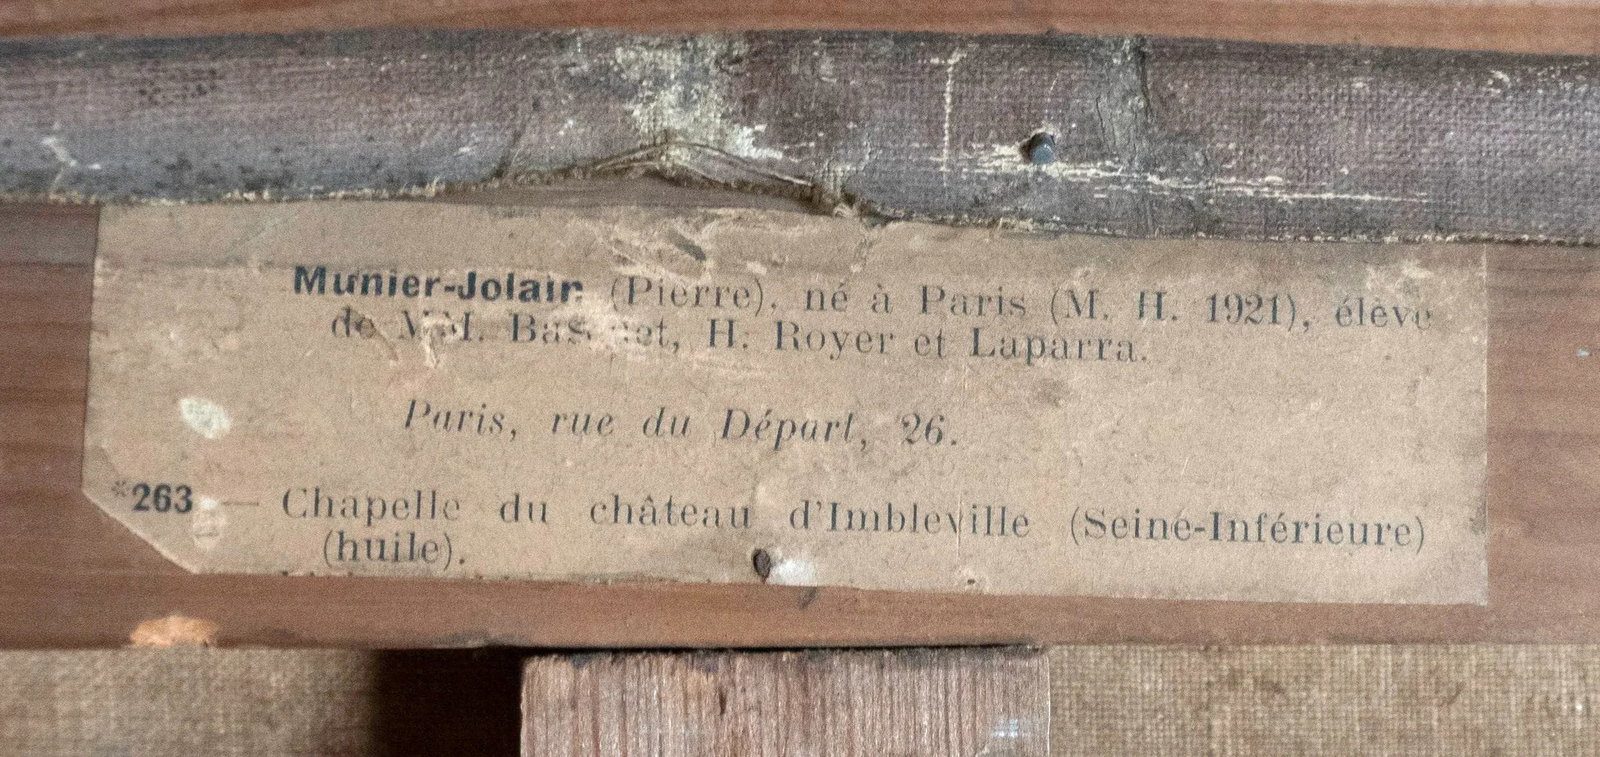 Munier-Jolain (Pierre), né à Paris (M. H. 1921), élève
de MM. et, H. Royer et Laparra.
Paris, rue du Départ, 26.
*263 — Chapelle du château d'Imbleville (Seine-Inférieure)
(huile).